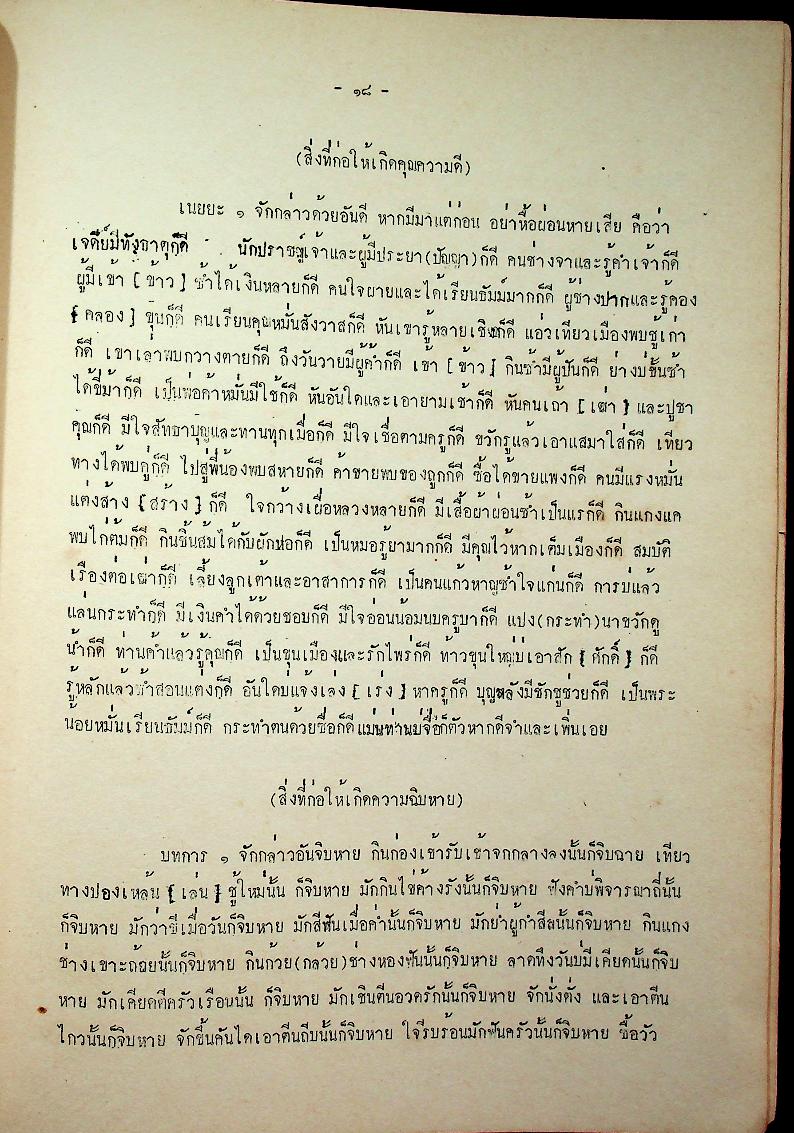 - ๑๘ -
(สิ่งที่ก่อให้เกิดคุณความดี)
เนยยะ ๑ จักกล่าวด้วยอันดี หากมีมาแต่ก่อน อย่าหื้อผ่อนหายเสีย คือว่า
เจดีย์มีทังธาตุก็ดี นักปราชญ์เจ้าและผู้มีประยา(ปัญญา)ก็ดี คนช่างจาและรู้คำเจ้าก็ดี
ผู้มีเข้า [ข้าว] ซ้ำได้เงินหลายก็ดี คนใจผายและได้เรียนธัมม์มากก็ดี ผู้ช่างปากและรู้คอง
[คลอง] ขุนก็ดี คนเรียนคุณหมั่นสังวาสก็ดี หันเขารู้หลายเชิงก็ดี แอ่วเทียวเมืองพบชู้เก่า
ก็ดี เขาเล่าพบกวางตายก็ดี ถึงวันวายมีผู้ค้ำก็ดี เข้า [ข้าว] กินซ้ำมีผู้ปันก็ดี ย่างบ่ขึ้นซ้ำ
ได้ขี่ม้าก็ดี เป็นพ่อค้าหมั่นมีใช้ก็ดี หันอันใดและเอายามเช้าก็ดี หันคนเถ้า [เฒ่า] และปูชา
คุณก็ดี มีใจสัทธาบุญและทานทุกเมื่อก็ดี มีใจเชื่อตามครูก็ดี ขวักรูแล้วเอาแสมาใส่ก็ดี เทียว
ทางได้พบคู่ก็ดี ไปสู่พี่น้องพบสหายก็ดี ค้าขายพบของถูกก็ดี ซื้อได้ขายแพงก็ดี คนมีแรงหมั่น
แต่งส้าง [สร้าง] ก็ดี ใจกว้างเผื่อหลวงหลายก็ดี มีเสื้อผ้าผ่อนซ้ำเป็นแรก็ดี กินแกงแค
พบไก่ต้มก็ดี กินชิ้นส้มได้กับผักห่อก็ดี เป็นหมอรู้ยามากก็ดี มีคุณไว้หากเต็มเมืองก็ดี สมบัติ
เรืองต่อเฒ่าก็ดี เลี้ยงลูกเต้าและอาสาการก็ดี เป็นคนแก้วหาญซ้ำใจแก่นก็ดี การบ่แล้ว
แล่นกระทำก็ดี มีเงินคำได้ด้วยชอบก็ดี มีใจอ่อนน้อมนบครูบาก็ดี แปง(กระทำ)นาขวักดู
น้ำก็ดี ท่านค้ำแล้วรู้คุณก็ดี เป็นขุนเมืองและรักไพร่ก็ดี ท้าวขุนใหญ่บ่เอาสัก [ศักดิ์] ก็ดี
รู้หลักแล้วซ้ำสอนแต่งก็ดี อันใดบ่แจ้งเล่ง [เร่ง] หาครูก็ดี บุญหลังมีชักชูช่วยก็ดี เป็นพระ
น้อยหมั่นเรียนธัมม์ก็ดี กระทำตนด้วยซื่อก็ดีแม่นท่านบ่จื่อก็ตัวหากดีจำและเพิ่นเอย
(สิ่งที่ก่อให้เกิดความฉิบหาย)
บทการ ๑ จักกล่าวอันจิบหาย กินก่องเข้ารับเช้าจกกลางลงนั้นก็จิบฉาย เทียว
ทางปองเหล้น [เล่น] ชู้ใหม่นั้น ก็จิบหาย มักกินไข่ค้างรังนั้นก็จิบหาย ฟังคำบ่พิจารณาถี่นั้น
ก็จิบหาย มักว่าขีเมื่อวันก็จิบหาย มักสีฟันเมื่อค่ำนั้นก็จิบหาย มักย่ำผู้กำสีลนั้นก็จิบหาย กินแกง
ช่างเขาะถ้อยนั้นก็จิบหาย กินก้วย(กล้วย)ช่างหองฟันนั้นก็จิบหาย ลาดทึงวันบ่มีเคียดนั้นก็จิบ
หาย มักเคียดตีครัวเรือนนั้น ก็จิบหาย มักเชินตีนอวดรักนั้นก็จิบหาย จักนั่งตั่ง และเอาตีน
ไกวนั้นก็จิบหาย จักขึ้นคันไดเอาตีนถีบนั้นก็จิบหาย ใจรีบร้อนมักฟันครัวนั้นก็จิบหาย ซื้อวัว